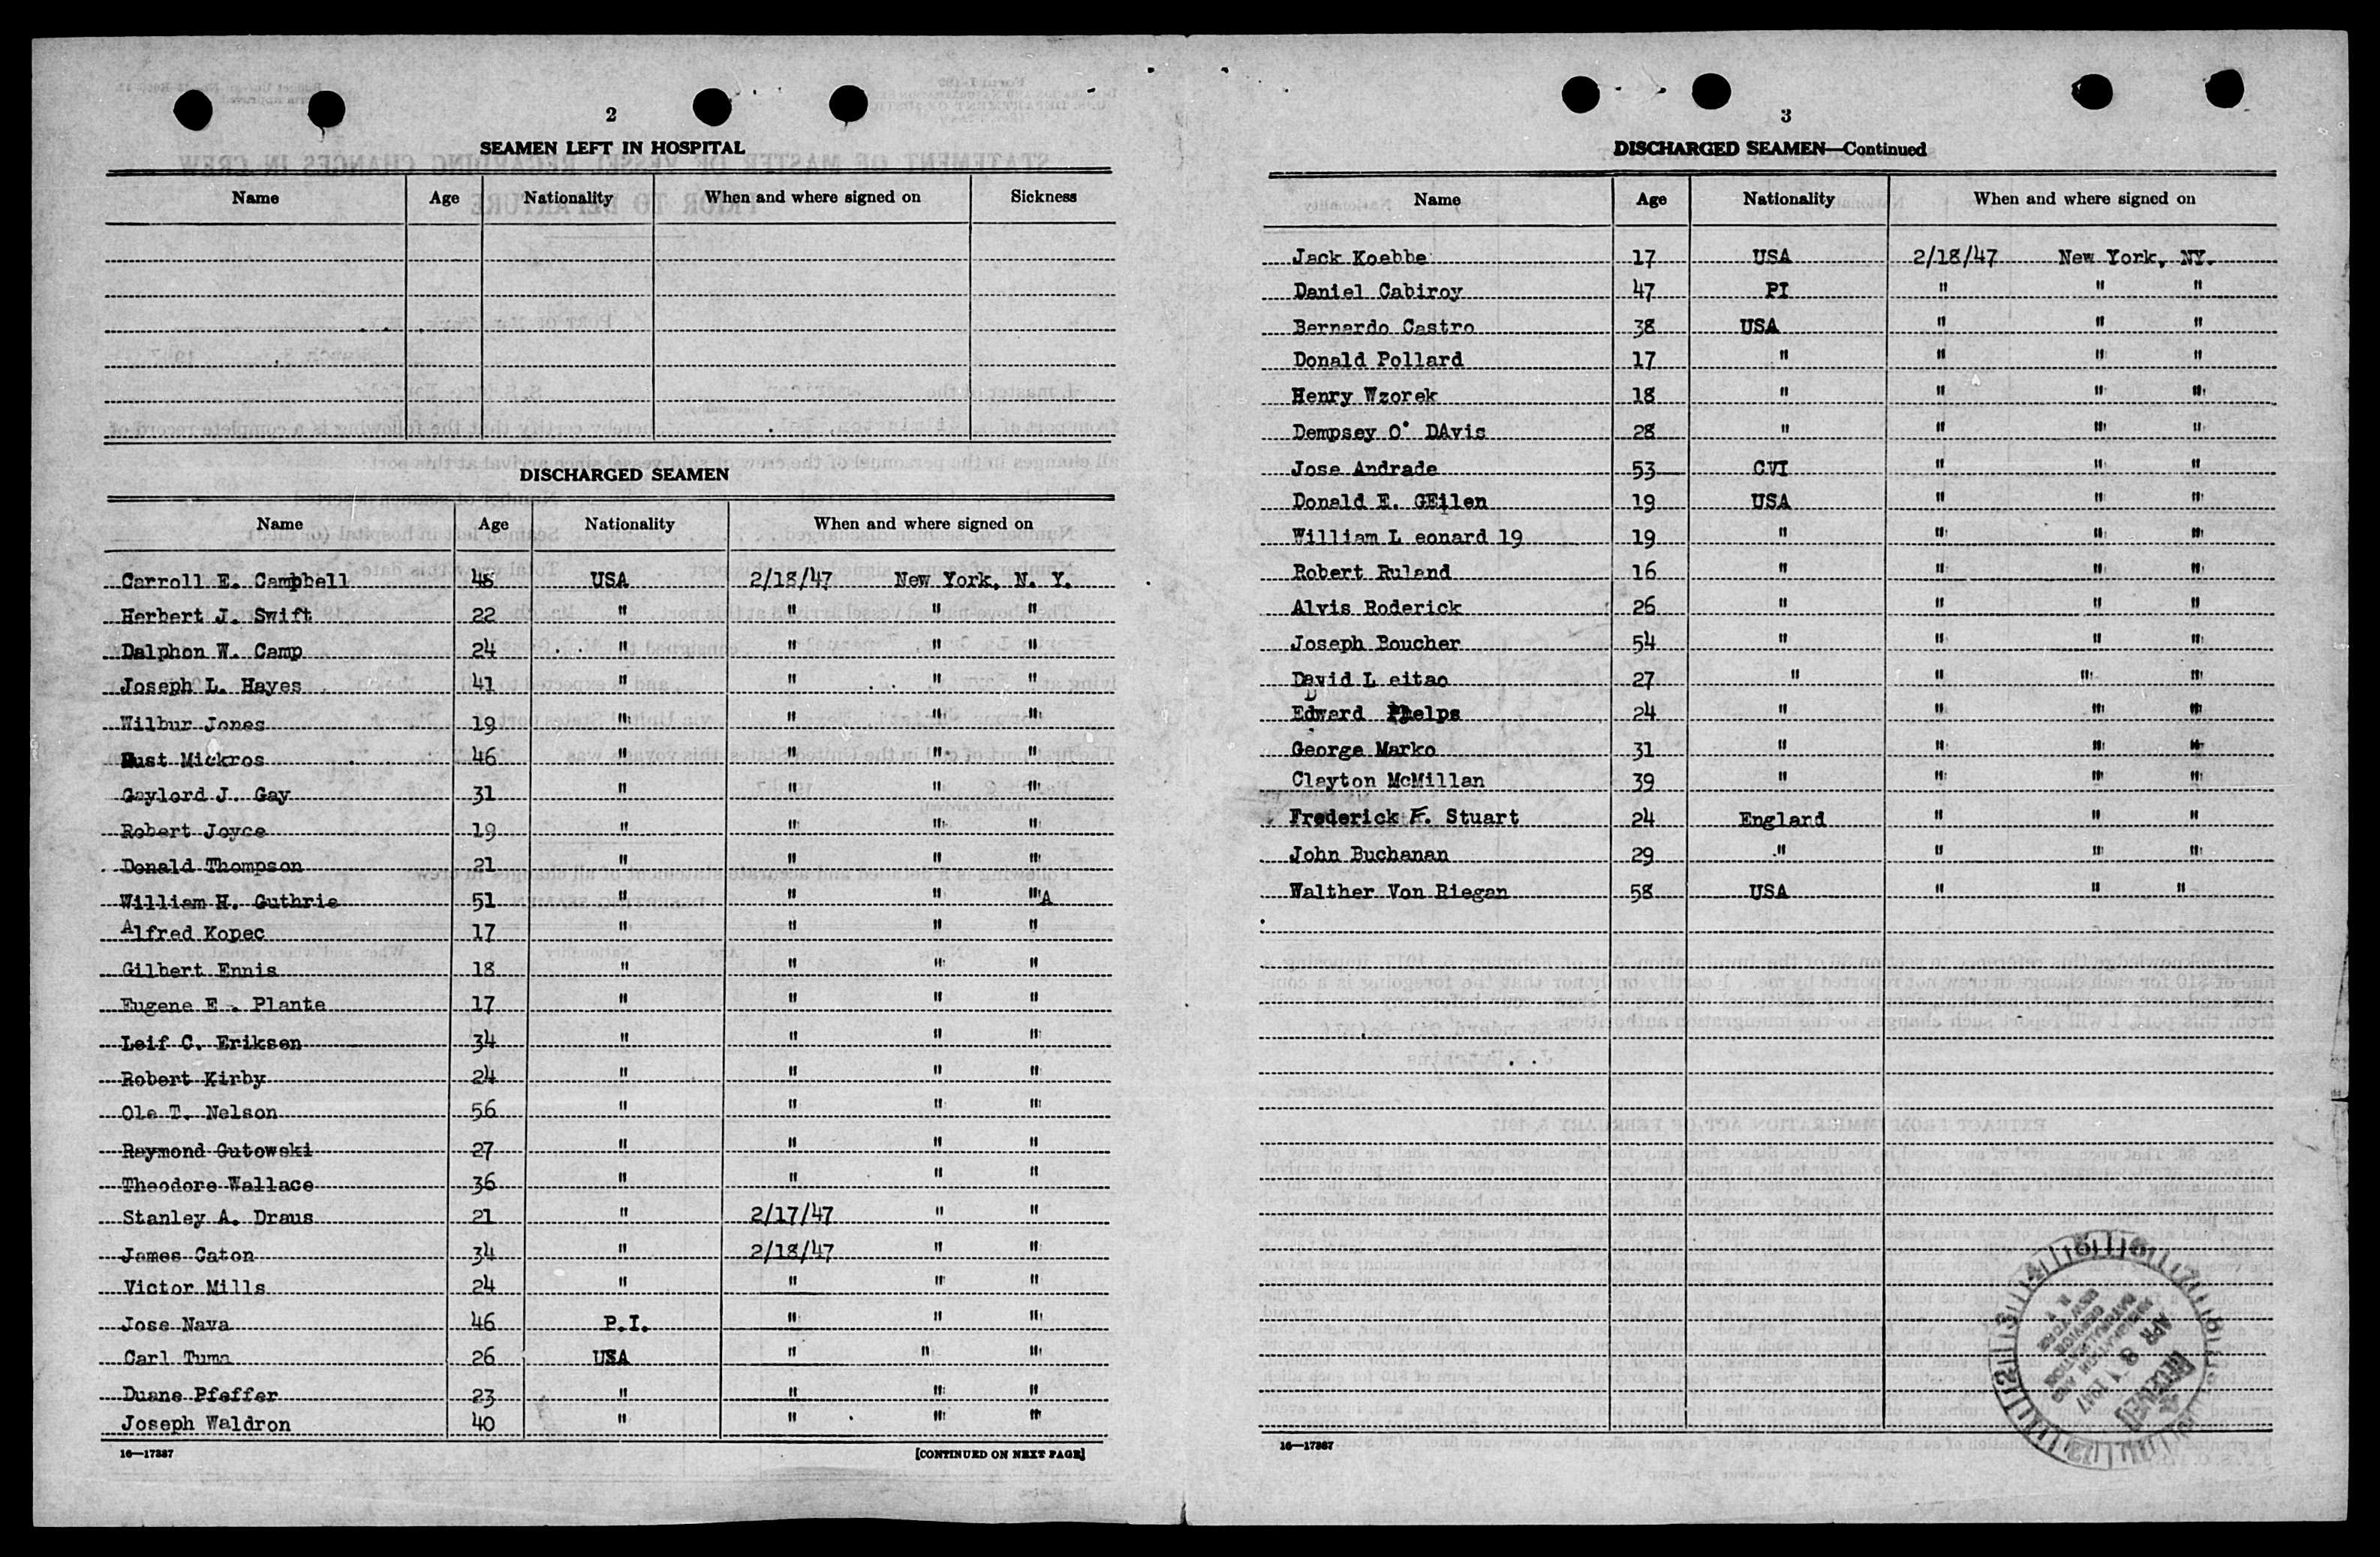 2
SEAMEN LEFT IN HOSPITAL
Name Age Nationality When and where signed on Sickness
DISCHARGED SEAMEN
Name Age Nationality When and where signed on
Carroll E. Campbell 48 USA 2/18/47 New York, N. Y.
Herbert J. Swift 22 " " " "
Dalphon W. Camp 24 " " " "
Joseph L. Hayes 41 " " " "
Wilbur Jones 19 " " " "
Gust Mickros 46 " " " "
Gaylord J. Gay 31 " " " "
Robert Joyce 19 " " " "
Donald Thompson 21 " " " "
William H. Guthrie 51 " " " "A
Alfred Kopec 17 " " " "
Gilbert Ennis 18 " " " "
Eugene E. Plante 17 " " " "
Leif C. Eriksen 34 " " " "
Robert Kirby 24 " " " "
Ole T. Nelson 56 " " " "
Raymond Gutowski 27 " " " "
Theodore Wallace 36 " " " "
Stanley A. Draus 21 " 2/17/47 " "
James Caton 34 " 2/18/47 " "
Victor Mills 24 " " " "
Jose Nava 46 P.I. " " "
Carl Tuma 26 USA " " "
Duane Pfeffer 23 " " " "
Joseph Waldron 40 " " " "
16—17387 [CONTINUED ON NEXT PAGE]
3
DISCHARGED SEAMEN—Continued
Name Age Nationality When and where signed on
Jack Koebbe 17 USA 2/18/47 New York, NY.
Daniel Cabiroy 47 PI " " "
Bernardo Castro 38 USA " " "
Donald Pollard 17 " " " "
Henry Wzorek 18 " " " "
Dempsey O' DAvis 28 " " " "
Jose Andrade 53 CVI " " "
Donald E. GEilen 19 USA " " "
William L eonard 19 19 " " " "
Robert Ruland 16 " " " "
Alvis Roderick 26 " " " "
Joseph Boucher 54 " " " "
David L eitao 27 " " " "
Edward Phelps 24 " " " "
George Marko 31 " " " "
Clayton McMillan 39 " " " "
Frederick F. Stuart 24 England " " "
John Buchanan 29 " " " "
Walther Von Riegan 58 USA " " "
16—17387
APR 8 1947